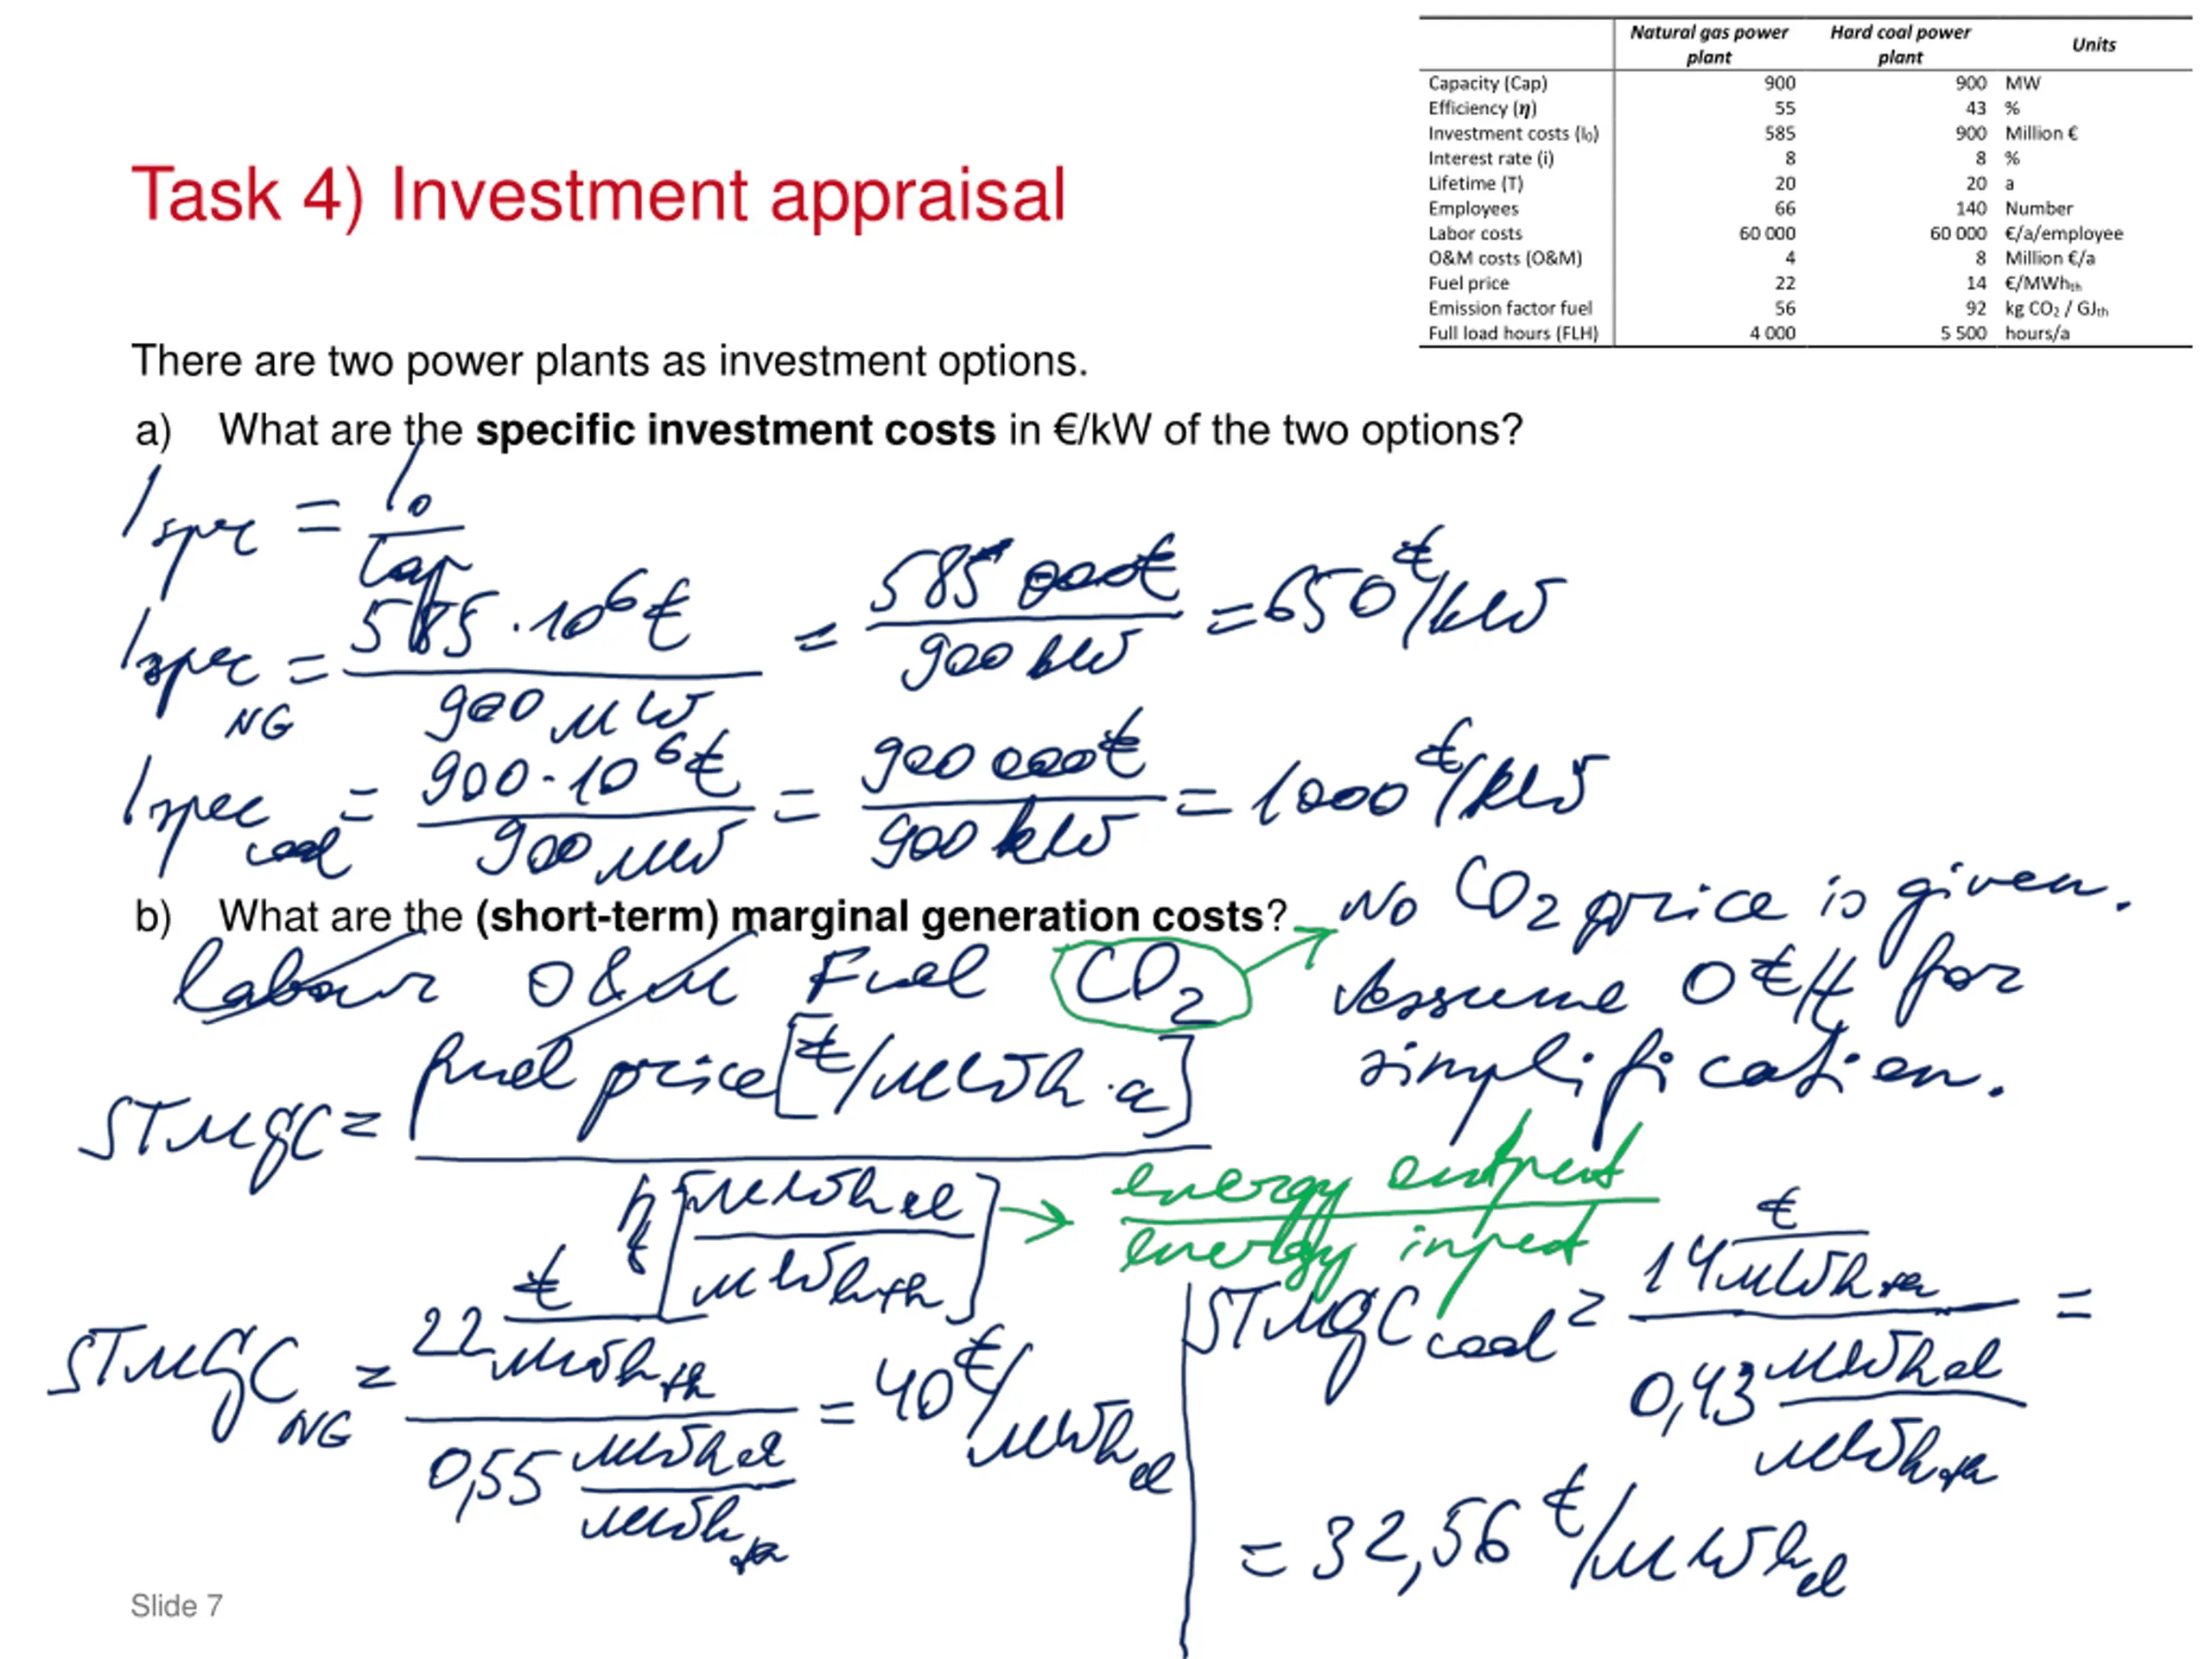 Natural gas power plant Hard coal power plant Units
Capacity (Cap) 900 900 MW
Efficiency (η) 55 43 %
Investment costs (I₀) 585 900 Million €
Interest rate (i) 8 8 %
Lifetime (T) 20 20 a
Employees 66 140 Number
Labor costs 60 000 60 000 €/a/employee
O&M costs (O&M) 4 8 Million €/a
Fuel price 22 14 €/MWhth
Emission factor fuel 56 92 kg CO₂ / GJth
Full load hours (FLH) 4 000 5 500 hours/a
Task 4) Investment appraisal
There are two power plants as investment options.
a) What are the specific investment costs in €/kW of the two options?
Ispec = I₀ / Cap
Ispec NG = 585 · 10⁶ € / 900 MW = 585 000 € / 900 kW = 650 €/kW
Ispec coal = 900 · 10⁶ € / 900 MW = 900 000 € / 900 kW = 1000 €/kW
b) What are the (short-term) marginal generation costs?
No CO₂ price is given.
Assume 0 €/t for
simplification.
Labour O&M Fuel CO₂
STMGC = fuel price [€/MWh·a] / η [MWhel / MWhth]
energy output / energy input
STMGC NG = 22 €/MWhth / 0,55 MWhel/MWhth = 40 €/MWhel
STMGC coal = 14 €/MWhth / 0,43 MWhel/MWhth =
= 32,56 €/MWhel
Slide 7